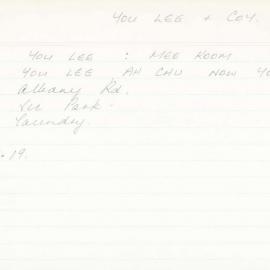 YOU LEE + COY.
YOU LEE : MEE KOOM
YOU LEE AH CHU NOW YO
Albany Rd.
Vic Park -
Laundry.
. 19.